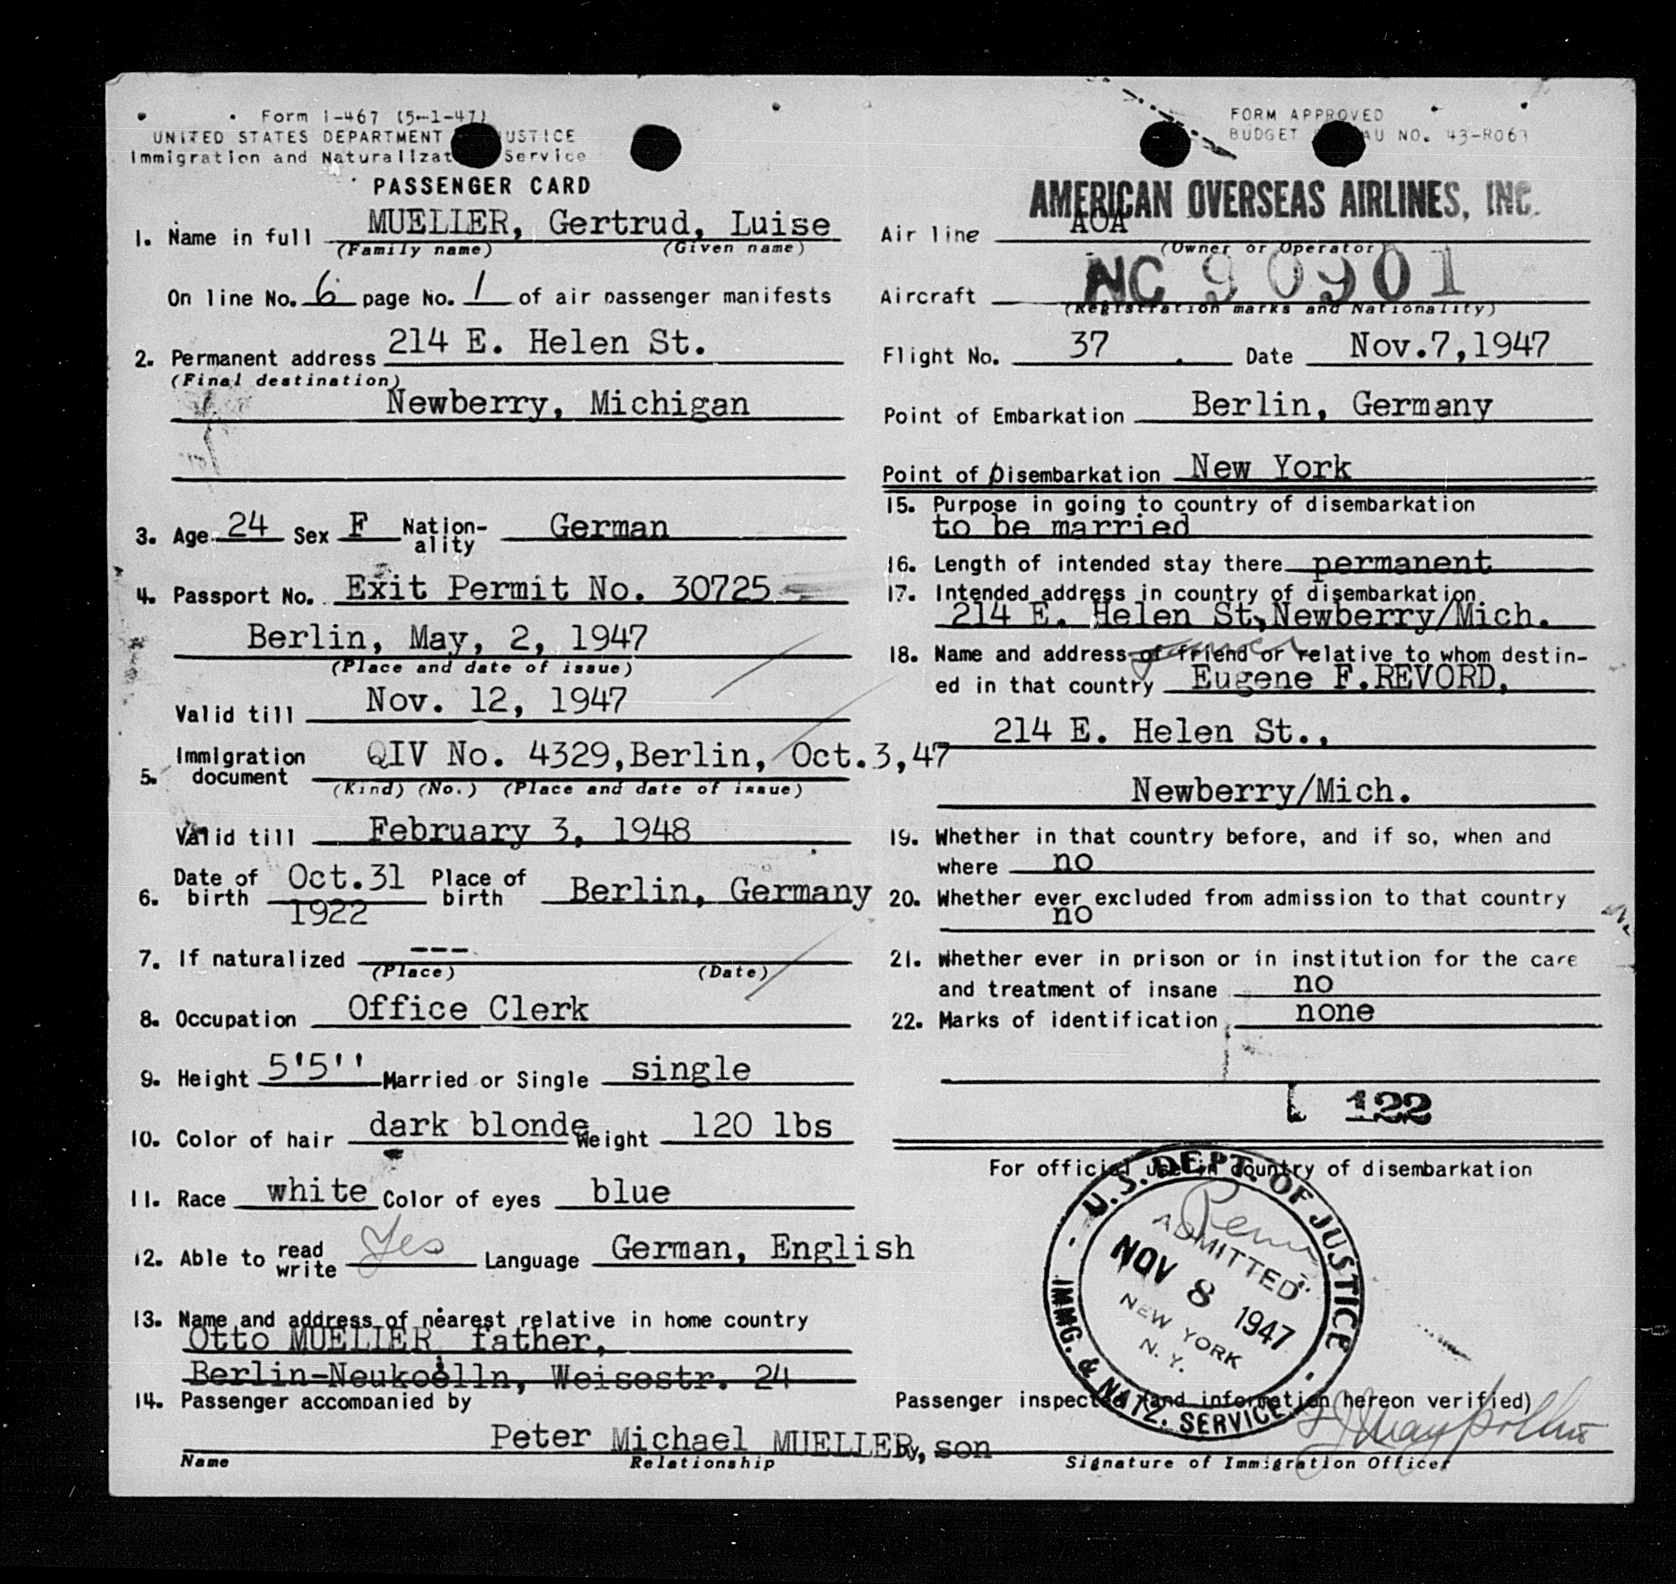 Form I-467 (5-1-47)
UNITED STATES DEPARTMENT USTICE
Immigration and Naturalizat Service
PASSENGER CARD
1. Name in full MUELLER, Gertrud, Luise
(Family name) (Given name)
On line No. 6 page No. 1 of air passenger manifests
2. Permanent address 214 E. Helen St.
(Final destination)
Newberry, Michigan
3. Age 24 Sex F Nation-ality German
4. Passport No. Exit Permit No. 30725
Berlin, May, 2, 1947
(Place and date of issue)
Valid till Nov. 12, 1947
5. Immigration document QIV No. 4329,Berlin, Oct.3,47
(Kind) (No.) (Place and date of issue)
Valid till February 3, 1948
6. Date of birth Oct.31 1922 Place of birth Berlin, Germany
7. If naturalized ---
(Place) (Date)
8. Occupation Office Clerk
9. Height 5'5'' Married or Single single
10. Color of hair dark blonde Weight 120 lbs
11. Race white Color of eyes blue
12. Able to read write Yes Language German, English
13. Name and address of nearest relative in home country
Otto MUELLER, father,
Berlin-Neukoelln, Weisestr. 24
14. Passenger accompanied by
Peter Michael MUELLER, son
Name Relationship
FORM APPROVED
BUDGET AU NO. 43-R063
AMERICAN OVERSEAS AIRLINES, INC.
Air line AOA
(Owner or Operator)
Aircraft NC 90901
(Registration marks and Nationality)
Flight No. 37 Date Nov.7,1947
Point of Embarkation Berlin, Germany
Point of Disembarkation New York
15. Purpose in going to country of disembarkation
to be married
16. Length of intended stay there permanent
17. Intended address in country of disembarkation
214 E. Helen St,Newberry/Mich.
18. Name and address of friend or relative to whom destin-
ed in that country Eugene F.REVORD,
214 E. Helen St.,
Newberry/Mich.
19. Whether in that country before, and if so, when and
where no
20. Whether ever excluded from admission to that country
no
21. Whether ever in prison or in institution for the care
and treatment of insane no
22. Marks of identification none
122
For official use in country of disembarkation
U.S. DEPT. OF JUSTICE
ADMITTED
NOV 8 1947
NEW YORK
N. Y.
IMMG. & NATZ. SERVICE
Passenger inspected (and information hereon verified)
Signature of Immigration Officer